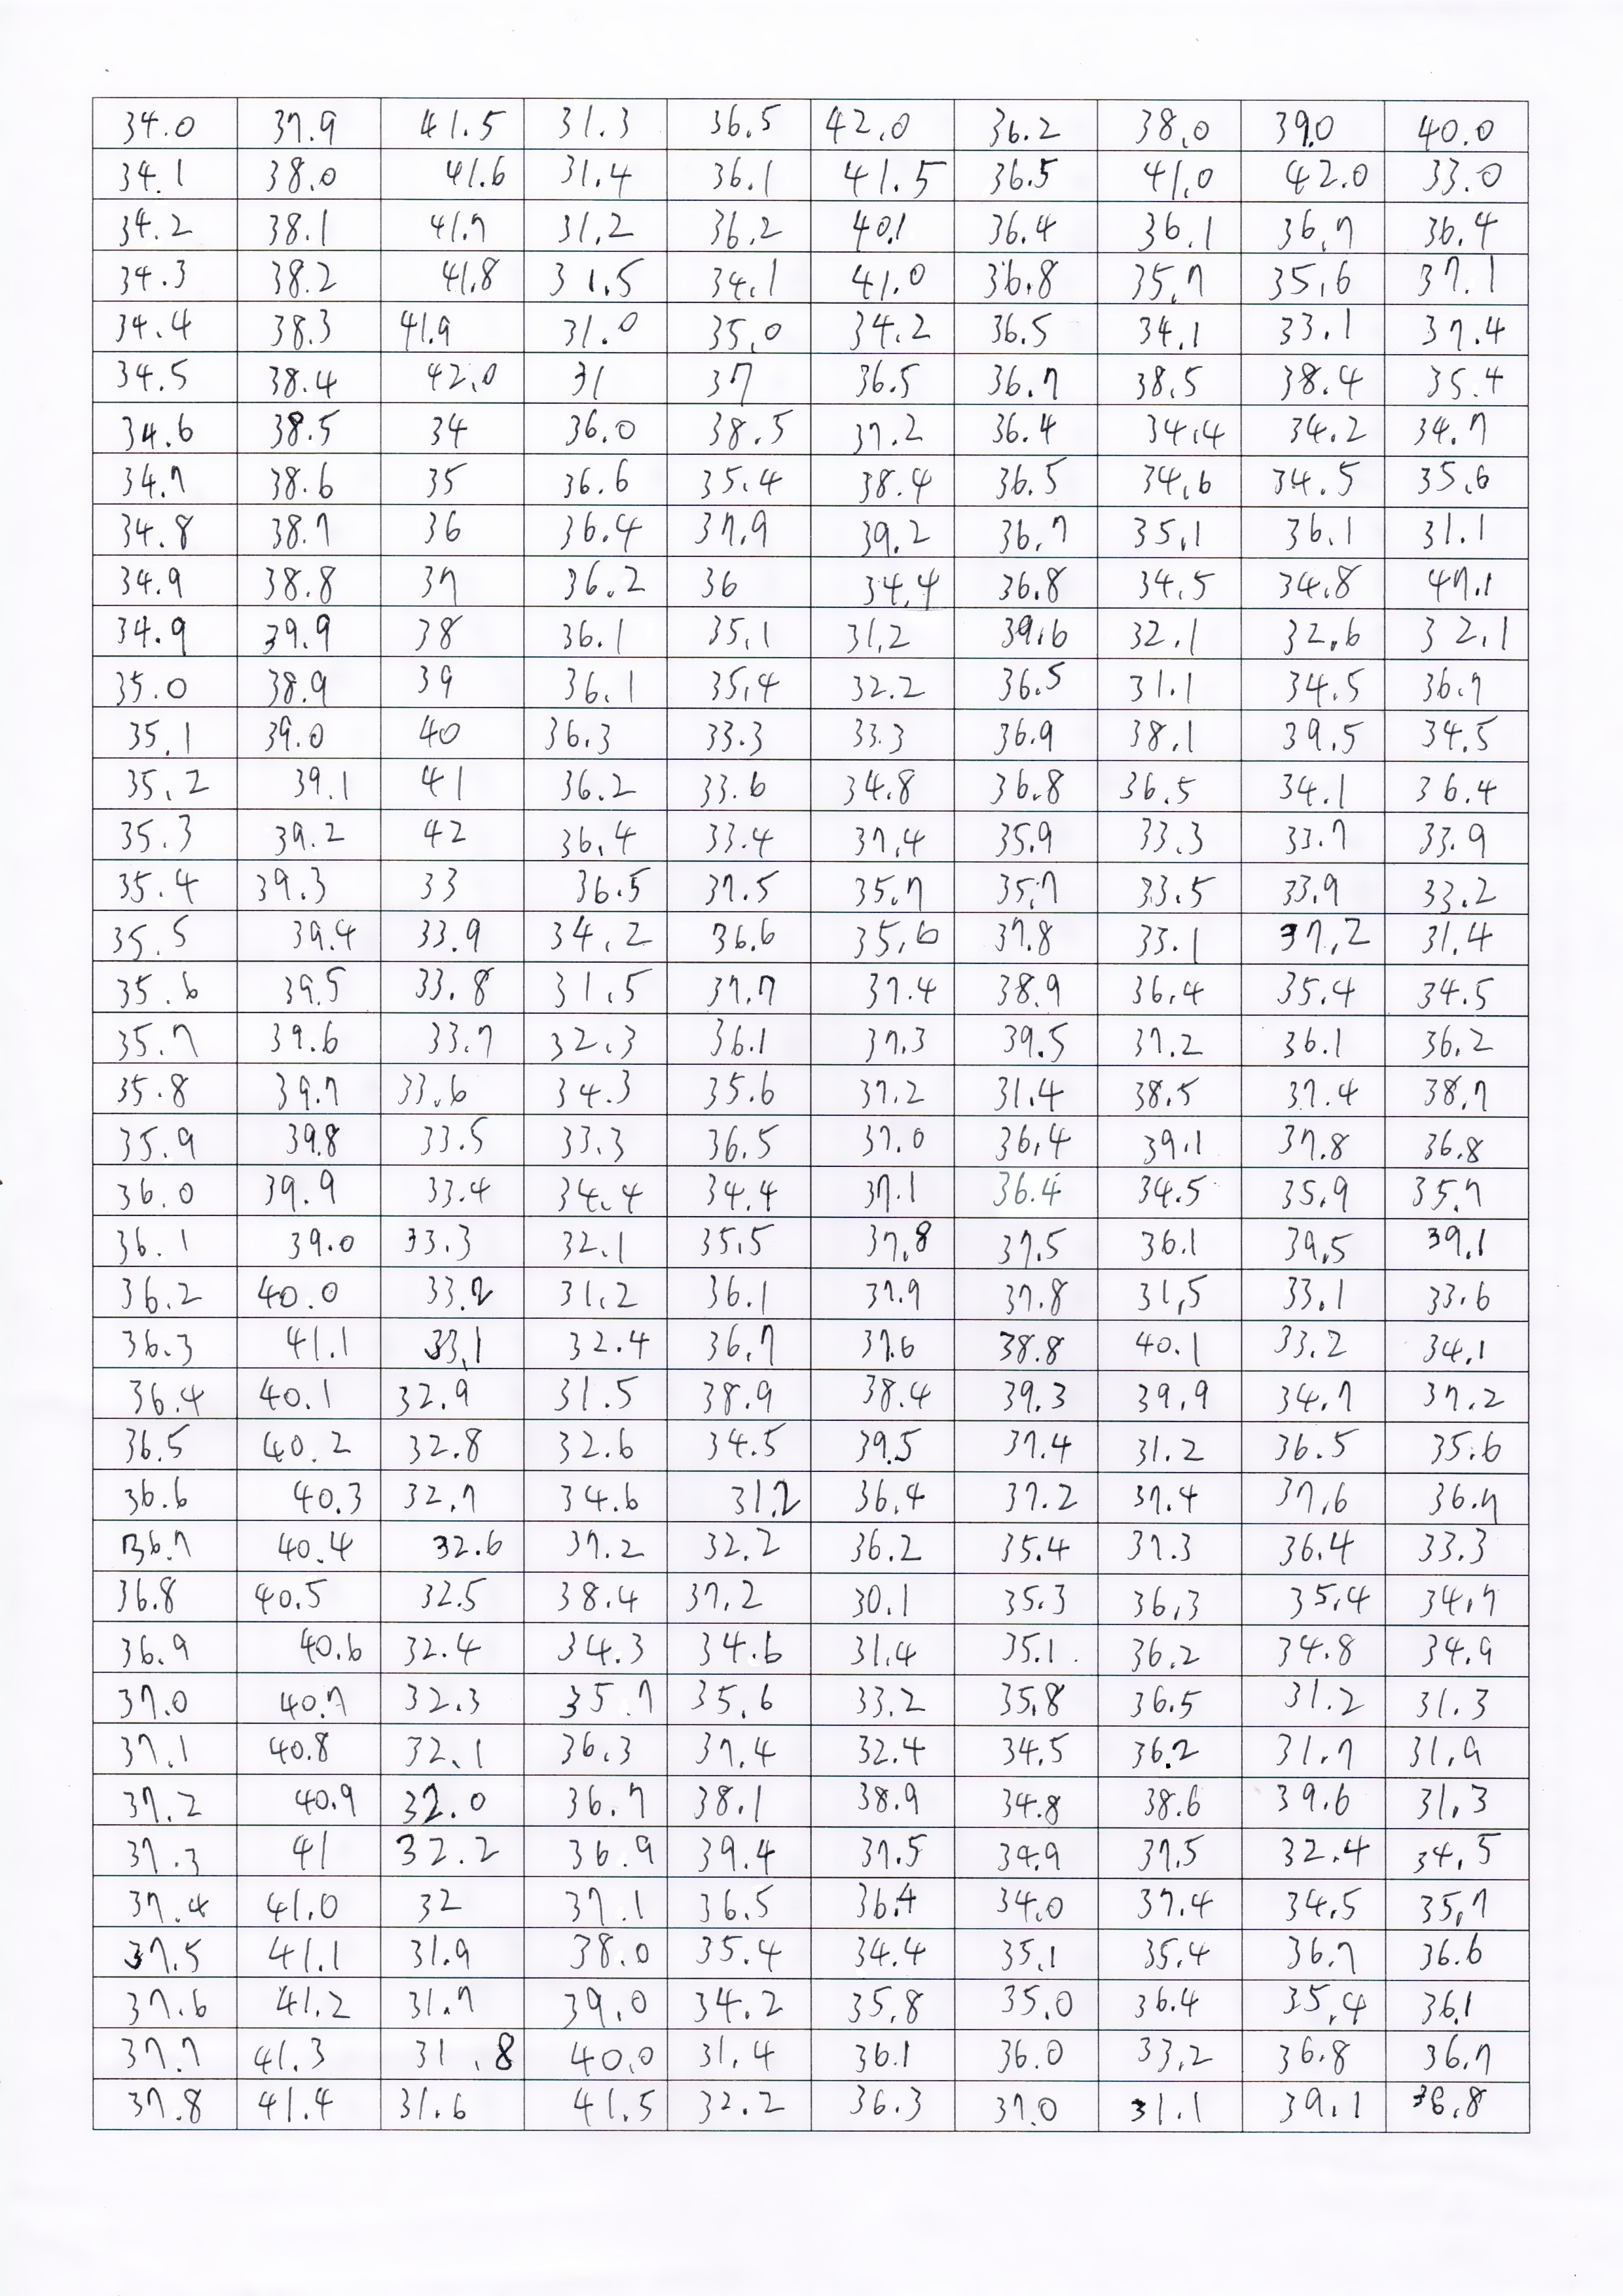 34.0 37.9 41.5 31.3 36.5 42.0 36.2 38.0 39.0 40.0
34.1 38.0 41.6 31.4 36.1 41.5 36.5 41.0 42.0 33.0
34.2 38.1 41.7 31.2 36.2 40.1 36.4 36.1 36.7 36.4
34.3 38.2 41.8 31.5 34.1 41.0 36.8 35.7 35.6 37.1
34.4 38.3 41.9 31.0 35.0 34.2 36.5 34.1 33.1 37.4
34.5 38.4 42.0 31 37 36.5 36.7 38.5 38.4 35.4
34.6 38.5 34 36.0 38.5 37.2 36.4 34.4 34.2 34.7
34.7 38.6 35 36.6 35.4 38.4 36.5 34.6 34.5 35.6
34.8 38.7 36 36.4 37.9 39.2 36.7 35.1 36.1 31.1
34.9 38.8 37 36.2 36 34.4 36.8 34.5 34.8 47.1
34.9 39.9 38 36.1 35.1 31.2 39.6 32.1 32.6 32.1
35.0 38.9 39 36.1 35.4 32.2 36.5 31.1 34.5 36.7
35.1 39.0 40 36.3 33.3 33.3 36.9 38.1 39.5 34.5
35.2 39.1 41 36.2 33.6 34.8 36.8 36.5 34.1 36.4
35.3 39.2 42 36.4 33.4 37.4 35.9 33.3 33.7 33.9
35.4 39.3 33 36.5 37.5 35.7 35.7 33.5 33.9 33.2
35.5 39.4 33.9 34.2 36.6 35.6 37.8 33.1 37.2 31.4
35.6 39.5 33.8 31.5 37.7 37.4 38.9 36.4 35.4 34.5
35.7 39.6 33.7 32.3 36.1 37.3 39.5 37.2 36.1 36.2
35.8 39.7 33.6 34.3 35.6 37.2 31.4 38.5 37.4 38.7
35.9 39.8 33.5 33.3 36.5 37.0 36.4 39.1 37.8 36.8
36.0 39.9 33.4 34.4 34.4 37.1 36.4 34.5 35.9 35.7
36.1 39.0 33.3 32.1 35.5 37.8 37.5 36.1 39.5 39.1
36.2 40.0 33.2 31.2 36.1 37.9 37.8 31.5 33.1 33.6
36.3 41.1 33.1 32.4 36.7 37.6 38.8 40.1 33.2 34.1
36.4 40.1 32.9 31.5 38.9 38.4 39.3 39.9 34.7 37.2
36.5 40.2 32.8 32.6 34.5 39.5 37.4 31.2 36.5 35.6
36.6 40.3 32.7 34.6 31.2 36.4 37.2 37.4 37.6 36.7
36.7 40.4 32.6 37.2 32.2 36.2 35.4 37.3 36.4 33.3
36.8 40.5 32.5 38.4 37.2 30.1 35.3 36.3 35.4 34.7
36.9 40.6 32.4 34.3 34.6 31.4 35.1 36.2 34.8 34.9
37.0 40.7 32.3 35.7 35.6 33.2 35.8 36.5 31.2 31.3
37.1 40.8 32.1 36.3 37.4 32.4 34.5 36.2 31.7 31.9
37.2 40.9 32.0 36.7 38.1 38.9 34.8 38.6 39.6 31.3
37.3 41 32.2 36.9 39.4 37.5 39.9 37.5 32.4 34.5
37.4 41.0 32 37.1 36.5 36.4 34.0 37.4 34.5 35.7
37.5 41.1 31.9 38.0 35.4 34.4 35.1 35.4 36.7 36.6
37.6 41.2 31.7 39.0 34.2 35.8 35.0 36.4 35.4 36.1
37.7 41.3 31.8 40.0 31.4 36.1 36.0 33.2 36.8 36.7
37.8 41.4 31.6 41.5 32.2 36.3 37.0 31.1 39.1 36.8